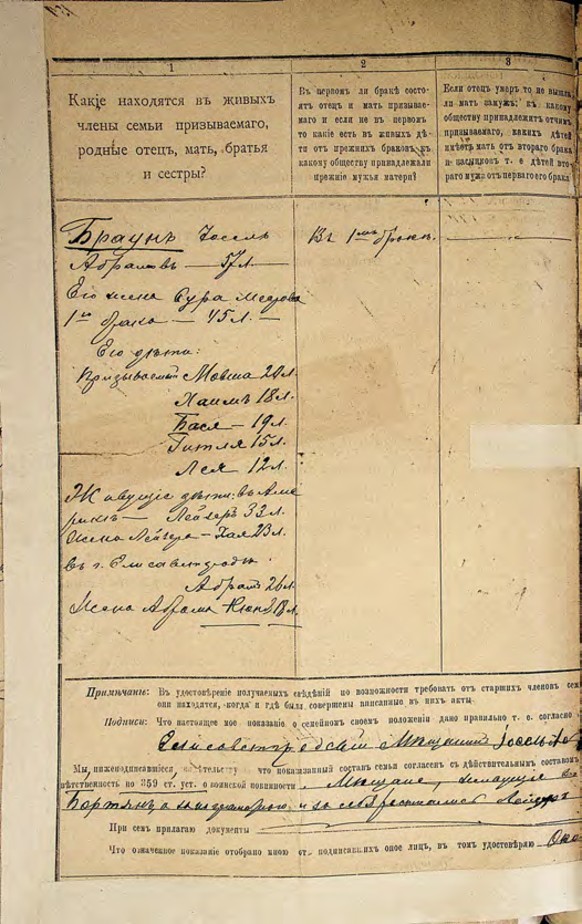 1
Какіе находятся въ живыхъ
члены семьи призываемаго,
родные отецъ, мать, братья
и сестры?
2
Въ первомъ ли бракѣ состо-
ятъ отецъ и мать призывае-
маго и если не въ первомъ
то какіе есть въ живыхъ дѣ-
ти отъ прежнихъ браковъ, къ
какому обществу принадлежали
прежніе мужья матери?
3
Если отецъ умеръ то не вышла
ли мать замужъ; къ какому
обществу принадлежитъ отчимъ
призываемаго, какихъ дѣтей
имѣетъ мать отъ втораго брака
и пасынковъ т. е дѣтей вто-
раго мужа отъ перваго его брака
Браунъ Іоссель
Абрамовъ — 57 л.
Его жена Сура Меерова
1го брака — 45 л. —
Его дѣти:
Призываемый Мовша 20 л.
Хаимъ 18 л.
Бася — 19 л.
Гитля 15 л.
Лея 12 л.
Живущіе дѣти: въ Аме
рикѣ — Лейзеръ 33 л.
Жена Лейзера — Хая 23 л.
въ г. Елисаветградѣ
Абрамъ 26 л.
Жена Абрама
Въ 1мъ бракѣ.
Примѣчаніе: Въ удостовѣреніе получаемыхъ свѣдѣній по возможности требовать отъ старшихъ членовъ сем
они находятся, когда и гдѣ были совершены вписанные въ нихъ акты.
Подписи: Что настоящее мое показаніе о семейномъ своемъ положеніи дано правильно т. е. согласно
Елисаветградскій Мѣщанинъ Іоссель
Мы, нижеподписавшіеся, что показанный составъ семьи согласенъ съ дѣйствительнымъ составомъ
вѣтственность по 359 ст. уст. о воинской повинности. Мѣщане,
и за себя росписался
При семъ прилагаю документы
Что означенное показаніе отобрано мною отъ подписавшихъ оное лицъ, въ томъ удостовѣряю